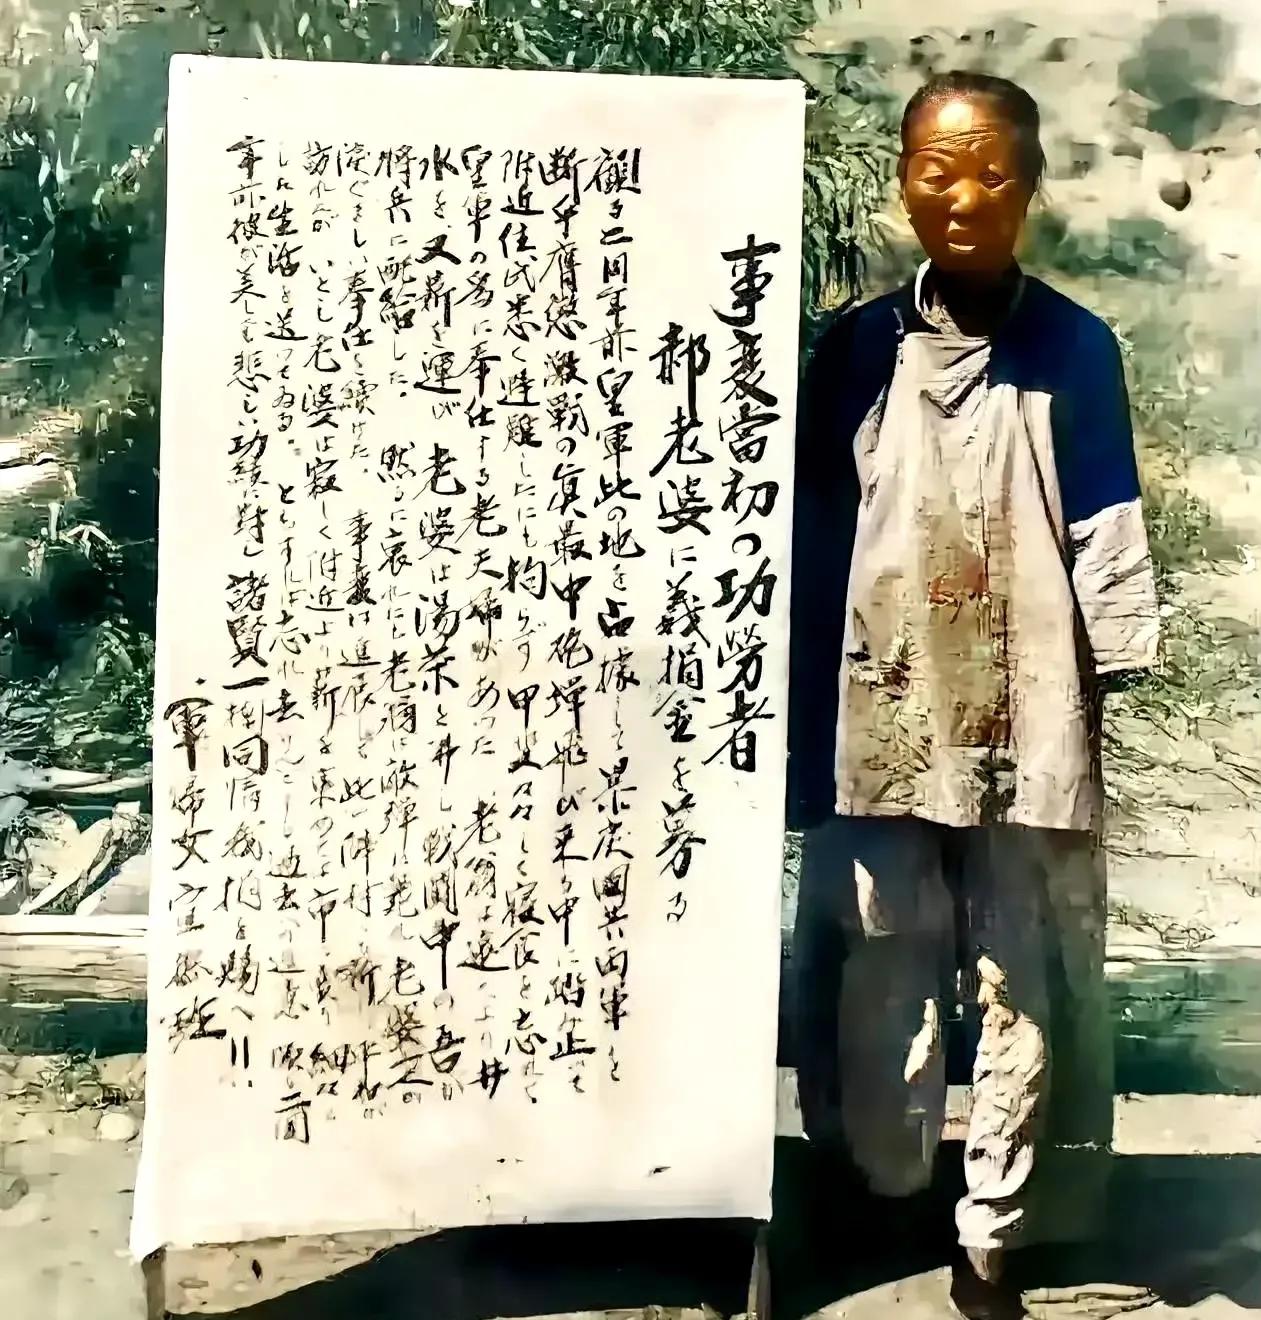 事変當初の功勞者
郝老婆に義捐金を募る
顧る二周年前皇軍此の地を占據して共両軍と
断乎膺懲激戰の真最中砲弾飛び来る中に踏み止って
附近住民悉く避難したにも拘らず甲斐々々しく寝食を忘れて
皇軍の為に奉仕する老夫婦があった 老翁は遠くより井
水を、又薪を運び 老婆は湯茶と 戦闘中の吾が
將兵に配給した。 然るに哀れにも老翁は敵弾に斃れ老婆
涙ぐましい奉仕を續けた。 事変は進展して此
訪れたが いとし老婆は寂しく附近より薪を集め
した生活を送ってゐる。 ともすれば忘れ去 過去の
事亦彼が美しも悲しい功績に對し 諸賢一掬同情義捐を賜へ!!
軍 婦女宣撫班